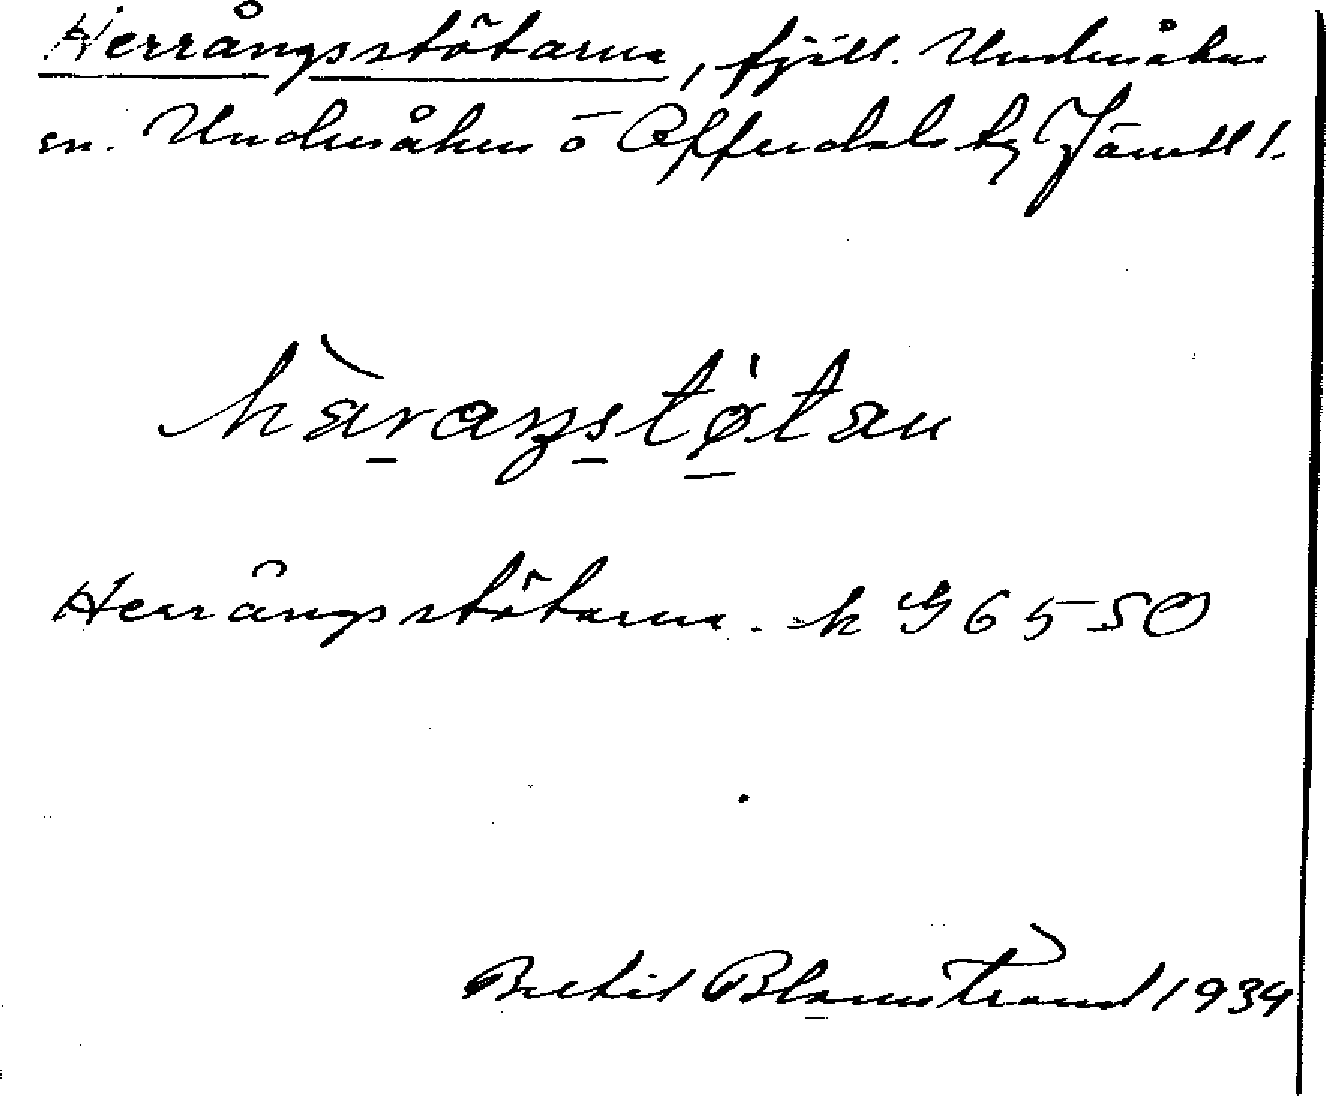 Herrångsstötarna, fjäll. Undersåkers
sn. Undersåkers o Offerdals tg Jämtl l.
hàraŋstø̀tan
Herrångsstötarna. k G 6550
Bertil Blomstrand 1934